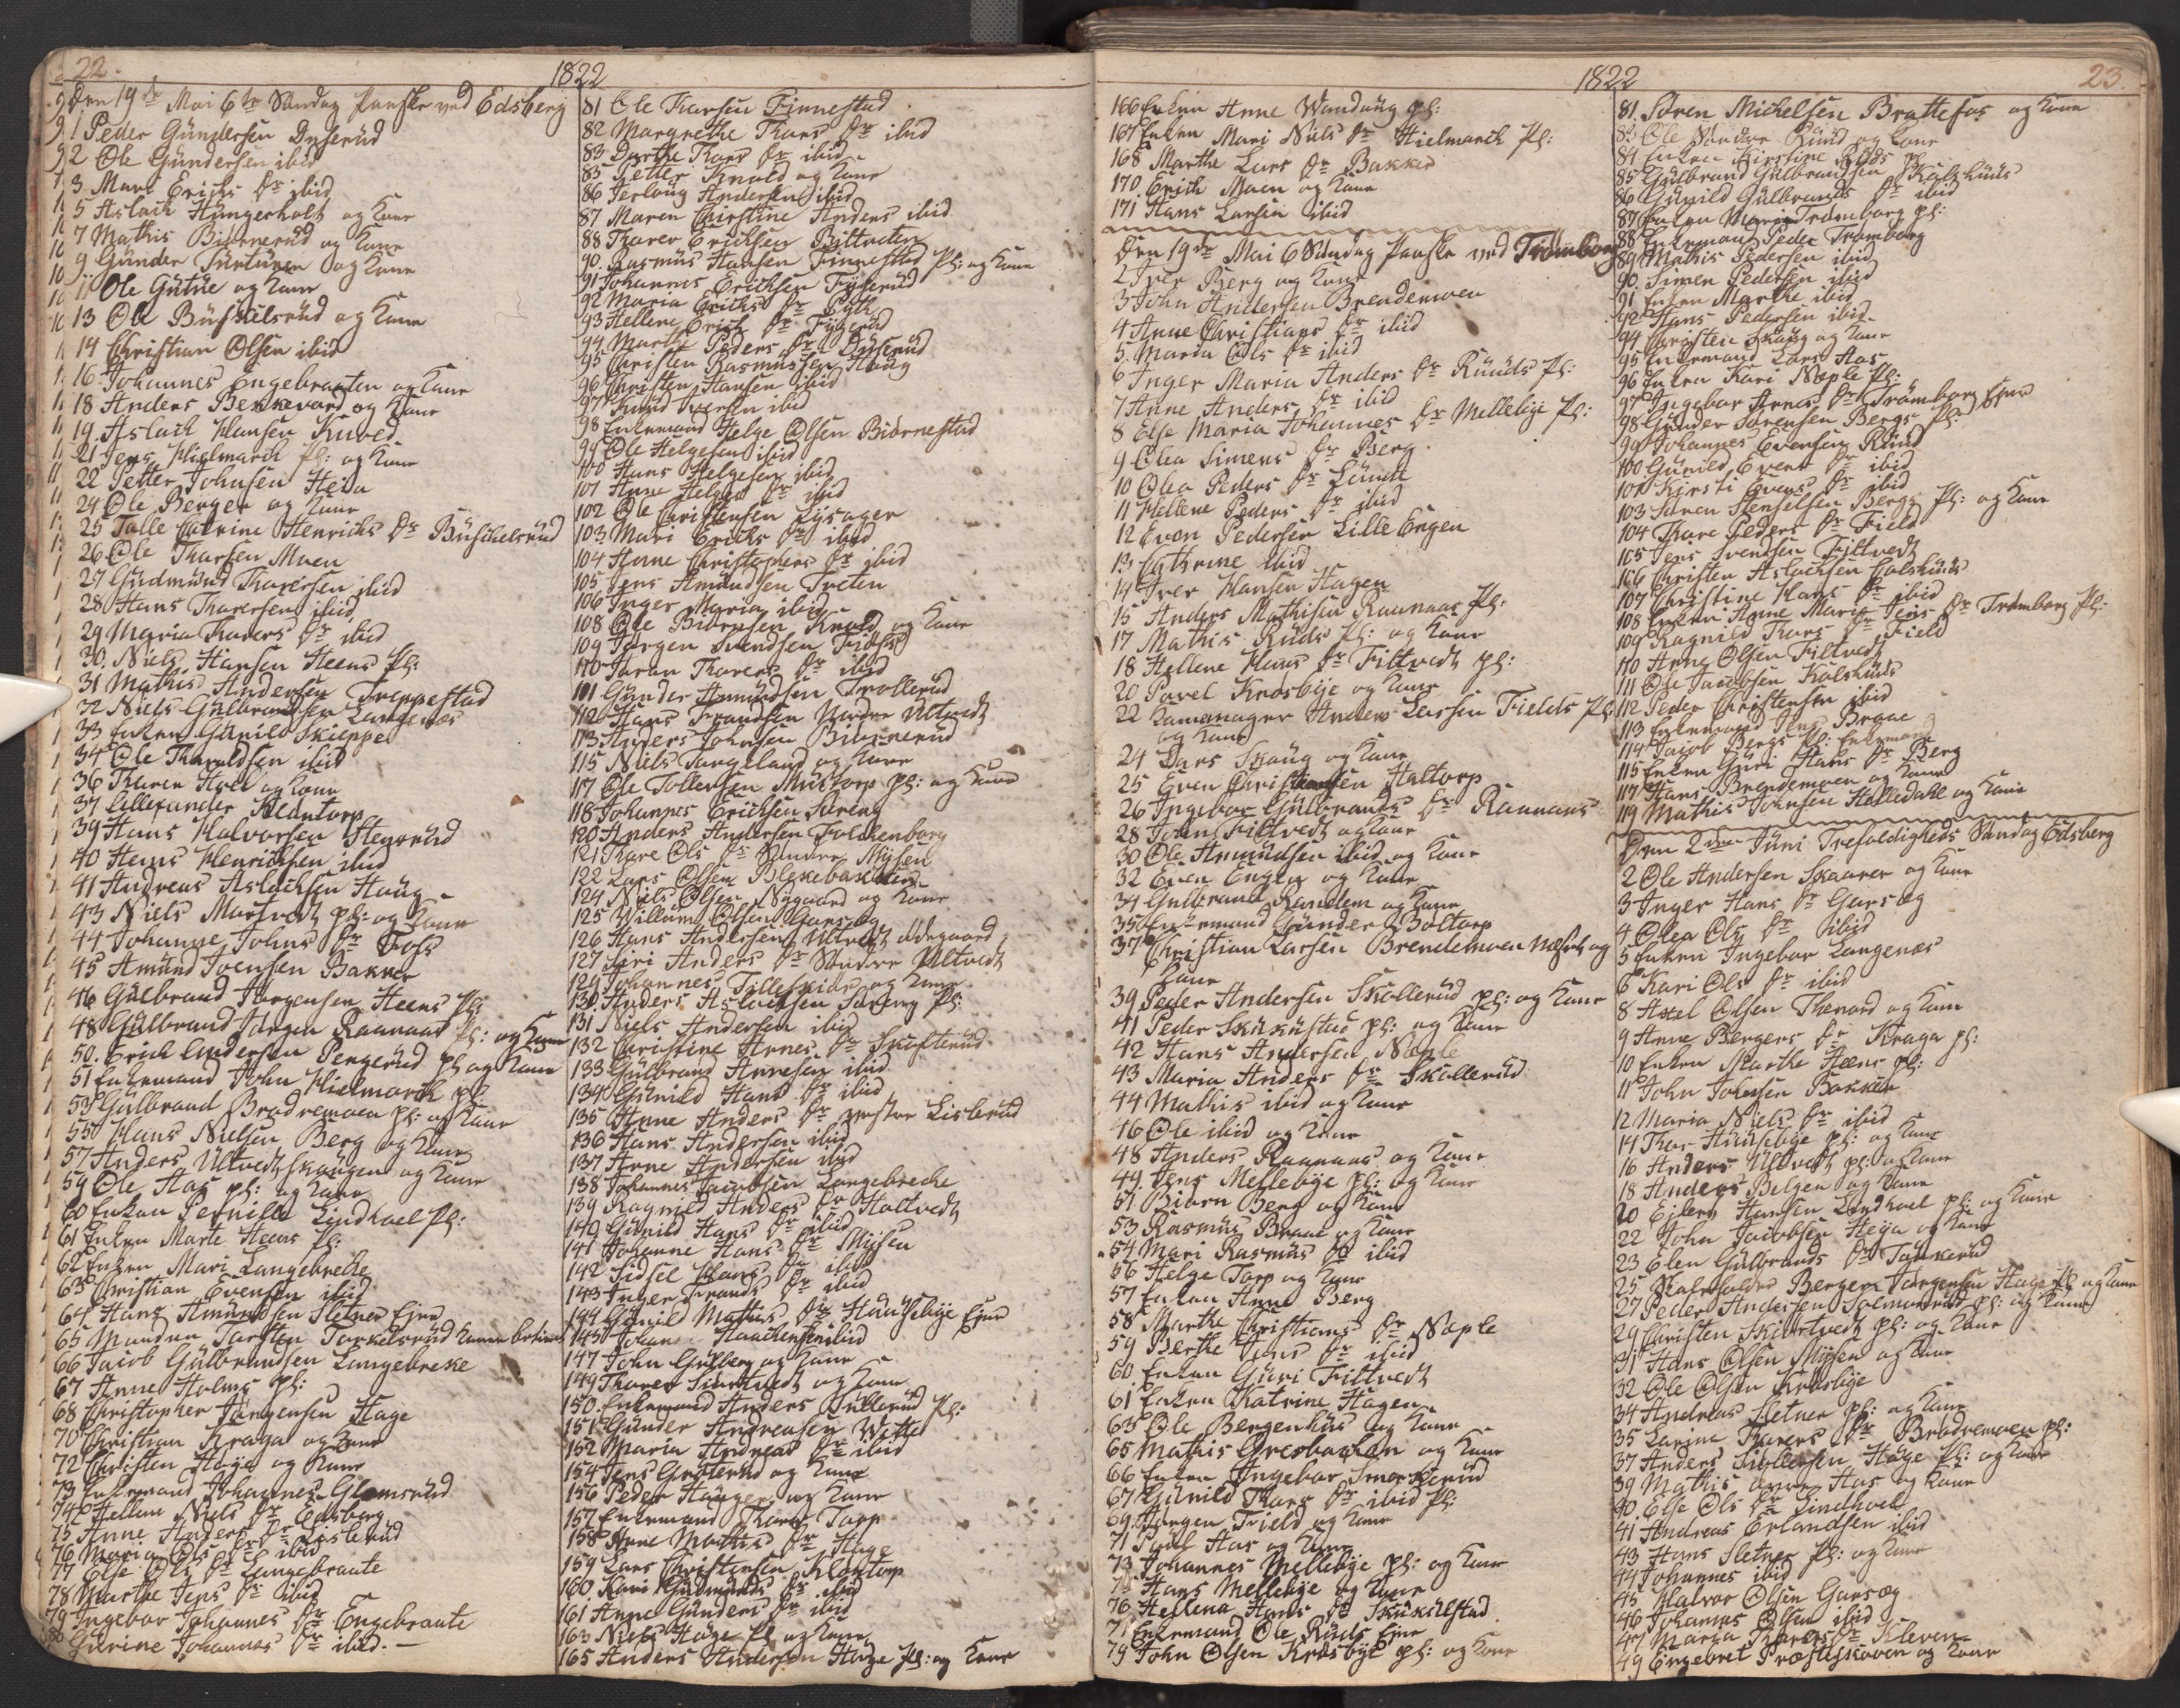 22.
1822
Den 19de Mai 6te Søndag Paaske ved Edsberg
1 Peder Gundersen Duserud
2 Ole Gundersen ibid
3 Mari Erichs Dr ibid
5 Aslach Hungerholt og Kone
7 Mathis Biørnerud og Kone
9 Gunder Turturen og Kone
11 Ole Gutue og Kone
13 Ole Buskilsrud og Kone
14 Christian Olsen ibid
16 Johannes Engebraaten og Kone
18 Anders Bekkevard og Kone
19. Aslach Hansen Knoed
21 Jens Hielmarck Pl: og Kone
22 Petter Johnsen Heia
24 Ole Berger og Kone
25 Talle Catrine Henrichs Dr Buschelsrud
26 Ole Thorsen Moen
27 Gudmund Thoresen ibid
28 Hans Thoresen ibid
29 Maria Thorers Dr ibid
30. Niels Hansen Heens Pl:
31 Mathis Andersen Treppestad
32 Niels Gulbrandsen Langenæs
33 Enken Gunild Skieppe
34 Ole Tharaldsen ibid
36 Thorer Holt og Kone
37 Lillexander Klontorp
39 Hans Halvorsen Stensrud
40 Hans Henrichsen ibid
41 Andreas Aslachsen Haug
43 Niels Martvedt pl: og Kone
44 Johanne Johns Dr Foss
45 Amund Joensen Bakker
46 Gulbrand Jørgensen Heens Pl:
48 Gulbrand Jørgen Raanaas Pl: og Kone
50. Erich Andersen Pengerud pl og Kone
51 Enkemand John Hielmarck pl:
53 Gulbrand Brødremoen pl: og Kone
55 Hans Nielsen Berg og Kone
57 Anders Ultvedtskougen og Kone
59 Ole Aas pl: og Kone
60 Enken Pernille Lindhoel Pl:
61 Enken Marte Heens Pl:
62 Enken Mari Langebreche
63 Christian Evensen ibid
64 Hans Amundsen Sletner Ejer
65 Manden Torsten Torkelsrud Konen betient
66 Jacob Gulbrandsen Langebreke
67 Anne Holms pl:
68 Christopher Jørgensen Hage
70 Christian Kraga og Kone
72 Christen Høye og Kone
73 Enkemand Johannes Glomsrud
74 Hellene Niels Dr Edsberg
75 Anne Anders Dr Lislerud
76 Maria Ols Dr ibid
77 Else Ols Dr Langebraate
78 Marthe Jens Dr ibid
79 Ingebor Johannes Dr Engebraate
80 Gurine Johannes Dr ibid. —
81 Ole Thorsen Finnestad
82 Margrethe Thors Dr ibid
83 Dorthe Thors Dr ibid
85 Petter Knold og Kone
86 Terloug Andersen ibid
87 Maren Christine Anders ibid
88 Thorer Erichsen Bittveten
90. Rasmus Hansen Finnestad Pl: og Kone
91 Johannes Erichsen Fuserud
92 Maria Erichs Dr
93 Hellene Erich Dr Fuserud
94 Marthe Peders Dr Duserud
95 Christen Rasmussen Haug
96 Christen Hansen ibid
97 Knud Iversen ibid
98 Enkemand Helge Olsen Biørnestad
99 Ole Helgesen ibid
100 Hans Helgesen ibid
101 Anne Helges Dr ibid
102 Ole Christensen Lysager
103 Mari Erichs Dr ibid
104 Anne Christophers Dr ibid
105 Jens Amundsen Treten
106 Inger Maria ibid
108 Ole Biørnsen Knold og Kone
109 Jørgen Svendsen Fioss
110 Joran Thorers Dr ibid
111 Gunder Amundsen Trollerud
112 Hans Frandsen Nordre Ultvedt
113 Anders Johnsen Biørnerud
115 Niels Torgeland og Kone
117 Ole Tollersen Mustorp pl: og Kone
118 Johannes Erichsen Søreng
120 Anders Andersen Folchenborg
121 Thore Ols Dr Søndre Mysen
122 Lars Olsen Blekebakken
124 Niels Olsen Nygaard og Kone
125 Willum Olsen Garseg
126 Hans Andersen Ultvedt Ødegaard
127 Siri Anders Dr Søndre Ultvedt
129 Johannes Tilleskiær og Kone
130. Anders Aslachsen Søreng Pl:
131 Niels Andersen ibid
132 Christine Arnes Dr Skofterud
133 Gulbrand Arnesen ibid
134 Gunild Hans Dr ibid
135 Anne Anders Dr vestre Lislerud
136 Hans Andersen ibid
137 Arne Andersen ibid
138 Johannes Jacobsen Langebreche
139 Ragnild Anders Dr Holtvedt
140 Gunild Hans Dr ibid
141 Johanne Hans Dr Mysen
142 Sidsel Hans Dr ibid
143 Inger Frands Dr ibid
144 Gunild Mathis Dr Haugebye Ejer
145 Johan Haachensen ibid
147 John Gulberg og Kone
149 Thorer Siurtvedt og Kone
150. Enkemand Anders Sullerud Pl:
151 Gunder Andreasen Wette
152 Maria Andreas Dr ibid
154 Jens Grøterud og Kone
156 Peder Haugen og Kone
157 Enkemand Thore Torp
158 Anne Mathis Dr Hage
159 Lars Christensen Klontorp
160 Kari Gudmunds Dr ibid
161 Anne Gunders Dr ibid
163 Niels Hage pl og Kone
165 Anders Andersen Hage Pl: og Kone
1822
23.
166 Enken Anne Wandung pl:
167 Enken Mari Niels Dr Hielmarch Pl:
168 Marthe Lars Dr Bakker
170 Erich Moen og Kone
171 Hans Larsen ibid
Den 19de Mai 6 Søndag Paaske ved Trømborg
2 Iver Berg og Kone
3 John Andersen Brendemoen
4 Anne Christians Dr ibid
5. Maria Ols Dr ibid
6 Inger Maria Anders Dr Ruuds Pl:
7 Anne Anders Dr ibid
8 Else Maria Johannes Dr Mellebye Pl:
9 Olea Simens Dr Berg
10 Olea Peders Dr Lunde
11 Hellene Peders Dr ibid
12 Even Pedersen Lille Engen
13 Cathrine ibid
14 Iver Hansen Hagen
15 Anders Mathisen Raanaas Pl:
17 Mathis Ruds Pl: og Kone
18 Hellene Hans Dr Filtvedt pl:
20 Povel Krosbye og Kone
22 Anders Larsen Fields Pl:
og Kone
24 Lars Skoug og Kone
25 Even Christiansen Haltorp
26 Ingebor Gulbrands Dr Raanaas
28 John Filtvedt og Kone
30 Ole Amundsen ibid og Kone
32 Even Engen og Kone
34 Gulbrand Ramdem og Kone
35 Enkemand Gunder Boltorp
37 Christian Larsen Brendemoen og
Kone
39 Peder Andersen Skollerud pl: og Kone
41 Peder Skukustad pl: og Kone
42 Hans Andersen Nøple
43 Maria Anders Dr Skollerud
44 Mathis ibid og Kone
46 Ole ibid og Kone
48 Anders Raanaas og Kone
49. Jens Mellebye pl: og Kone
51 Biørn Berg og Kone
53 Rasmus Braae og Kone
54 Mari Rasmus Dr ibid
56 Helge Torp og Kone
57 Enken Anne Berg
58 Marthe Christians Dr Nøple
59 Berthe Jens Dr ibid
60 Enken Guri Filtvedt
61 Enken Katrine Hagen
63 Ole Bergenhus og Kone
65 Mathis Gresbacken og Kone
66 Enken Ingebor Smørskerud
67 Gunild Thors Dr ibid Pl:
69. Jørgen Field og Kone
71 Povel Aas og Kone
73 Johannes Mellebye pl: og Kone
75 Hans Mellebye og Kone
76 Hellena Hans Dr Skukulstad
77 Enkemand Ole Ruds Ejer
79 John Olsen Krosbye pl: og Kone
81. Søren Michelsen Brattefos og Kone
83 Ole Nordre Ruud og Kone
84 Enken Kirstine Ruds pl
85 Gulbrand Gulbrandsen Kolshuus
86 Gunild Gulbrands Dr ibid
87 Enken Maria Trømborg pl:
88 Enkemand Peder Trømborg
89 Mathis Pedersen ibid
90. Simen Pedersen ibid
91 Enken Marthe ibid
92 Hans Pedersen ibid
94 Christen Skoug og Kone
95 Enkemand Lars Aas
96 Enken Kari Nøple Pl:
97 Ingebor Arnes Dr Trømborg Ejer
98 Gunder Sørensen Bergs Pl:
99 Johannes Evensen Ruud
100 Gunild Evens Dr ibid
101 Kirsti Evens Dr ibid
103 Søren Stenselsen Bergs Pl: og Kone
104 Thore Peders Dr Field
105 Jens Svendsen Filtvedt
106 Christen Aslachsen Kolshuus
107 Christine Hans Dr ibid
108 Enken Anne Marie Jens Dr Trømborg Pl:
109 Ragnild Thors Dr Field
110 Arne Olsen Filtvedt
111 Ole Jacobsen Kolshuus
112 Peder Christensen ibid
113 Enkemand Jens Braae
114 Jacob Bergs Pl: Enkemand
115 Enken Guri Hans Dr Berg
117 Hans Brendemoen og Kone
119 Mathis Johnsen Helledahl og Kone
Den 2den Juni Trefoldigheds Søndag Edsberg
2 Ole Andersen Skaarer og Kone
3 Inger Hans Dr Garseg
4 Olea Ols Dr ibid
5 Enken Ingebor Langenæs
6 Kari Ols Dr ibid
8 Axel Olsen Thenord og Kone
9 Anne Bergers Dr Kraga pl:
10 Enken Marthe Heens pl:
11 John Johnsen Bakken
12 Maria Niels Dr ibid
14 Thor Haugebye pl: og Kone
16 Anders Ultvedt pl: og Kone
18 Anders Belgen og Kone
20 Ejlert Hansen Lindhoel pl: og Kone
22 John Jacobsen Heija og Kone
23 Elen Gulbrands Dr Torkerud
25 Berger Jørgensen Hage pl og Kone
27 Peder Andersen Tolmonrud pl: og Kone
29 Christen Skiørtvedt pl: og Kone
31 Hans Olsen Mysen og Kone
32 Ole Olsen Krosbye
34 Andreas Sletner pl: og Kone
35 Larine Thorers Dr Brødremoen pl:
37 Anders Tollefsen Hage Pl: og Kone
39 Mathis øvre Aas og Kone
40. Else Ols Dr Lindhoel
41 Andreas Erlandsen ibid
43 Hans Sletner pl: og Kone
44 Johannes ibid
45 Halvor Olsen Garseg
46 Johannes Olsen ibid
47 Maria Thorers Dr Kleven
49 Engebret Præsteskoven og Kone